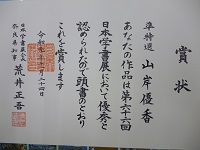 賞状
準特選 山岸優香
あなたの作品は第六十六回
日本学書展において優秀と
認められたので頭書のとおり
これを賞します
令和 年 月二十四日
日本学書展会長
奈良県知事 荒井正吾